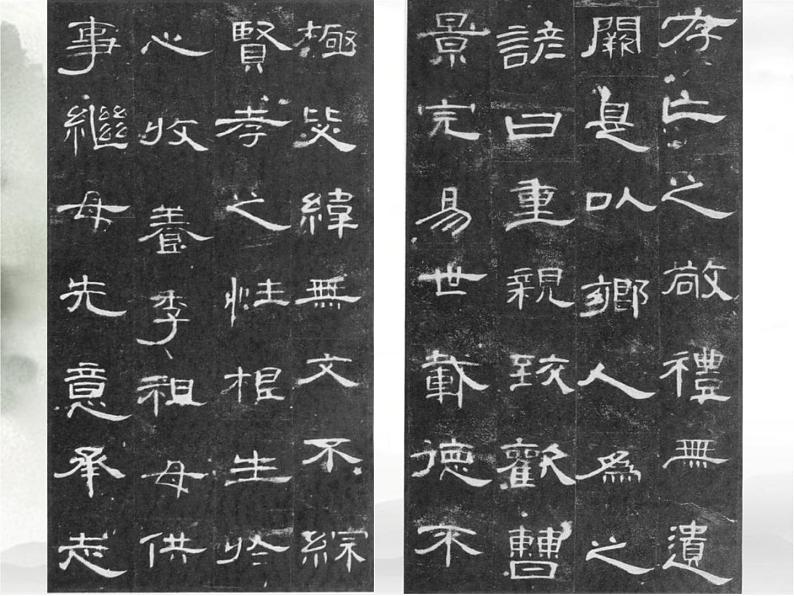 極毖緯無文不綜
賢孝之性根生於
心收養季祖母供
事繼母先意承志
存亡之敬禮無遺
闕是以鄉人為之
諺曰重親致歡曹
景完易世載德不